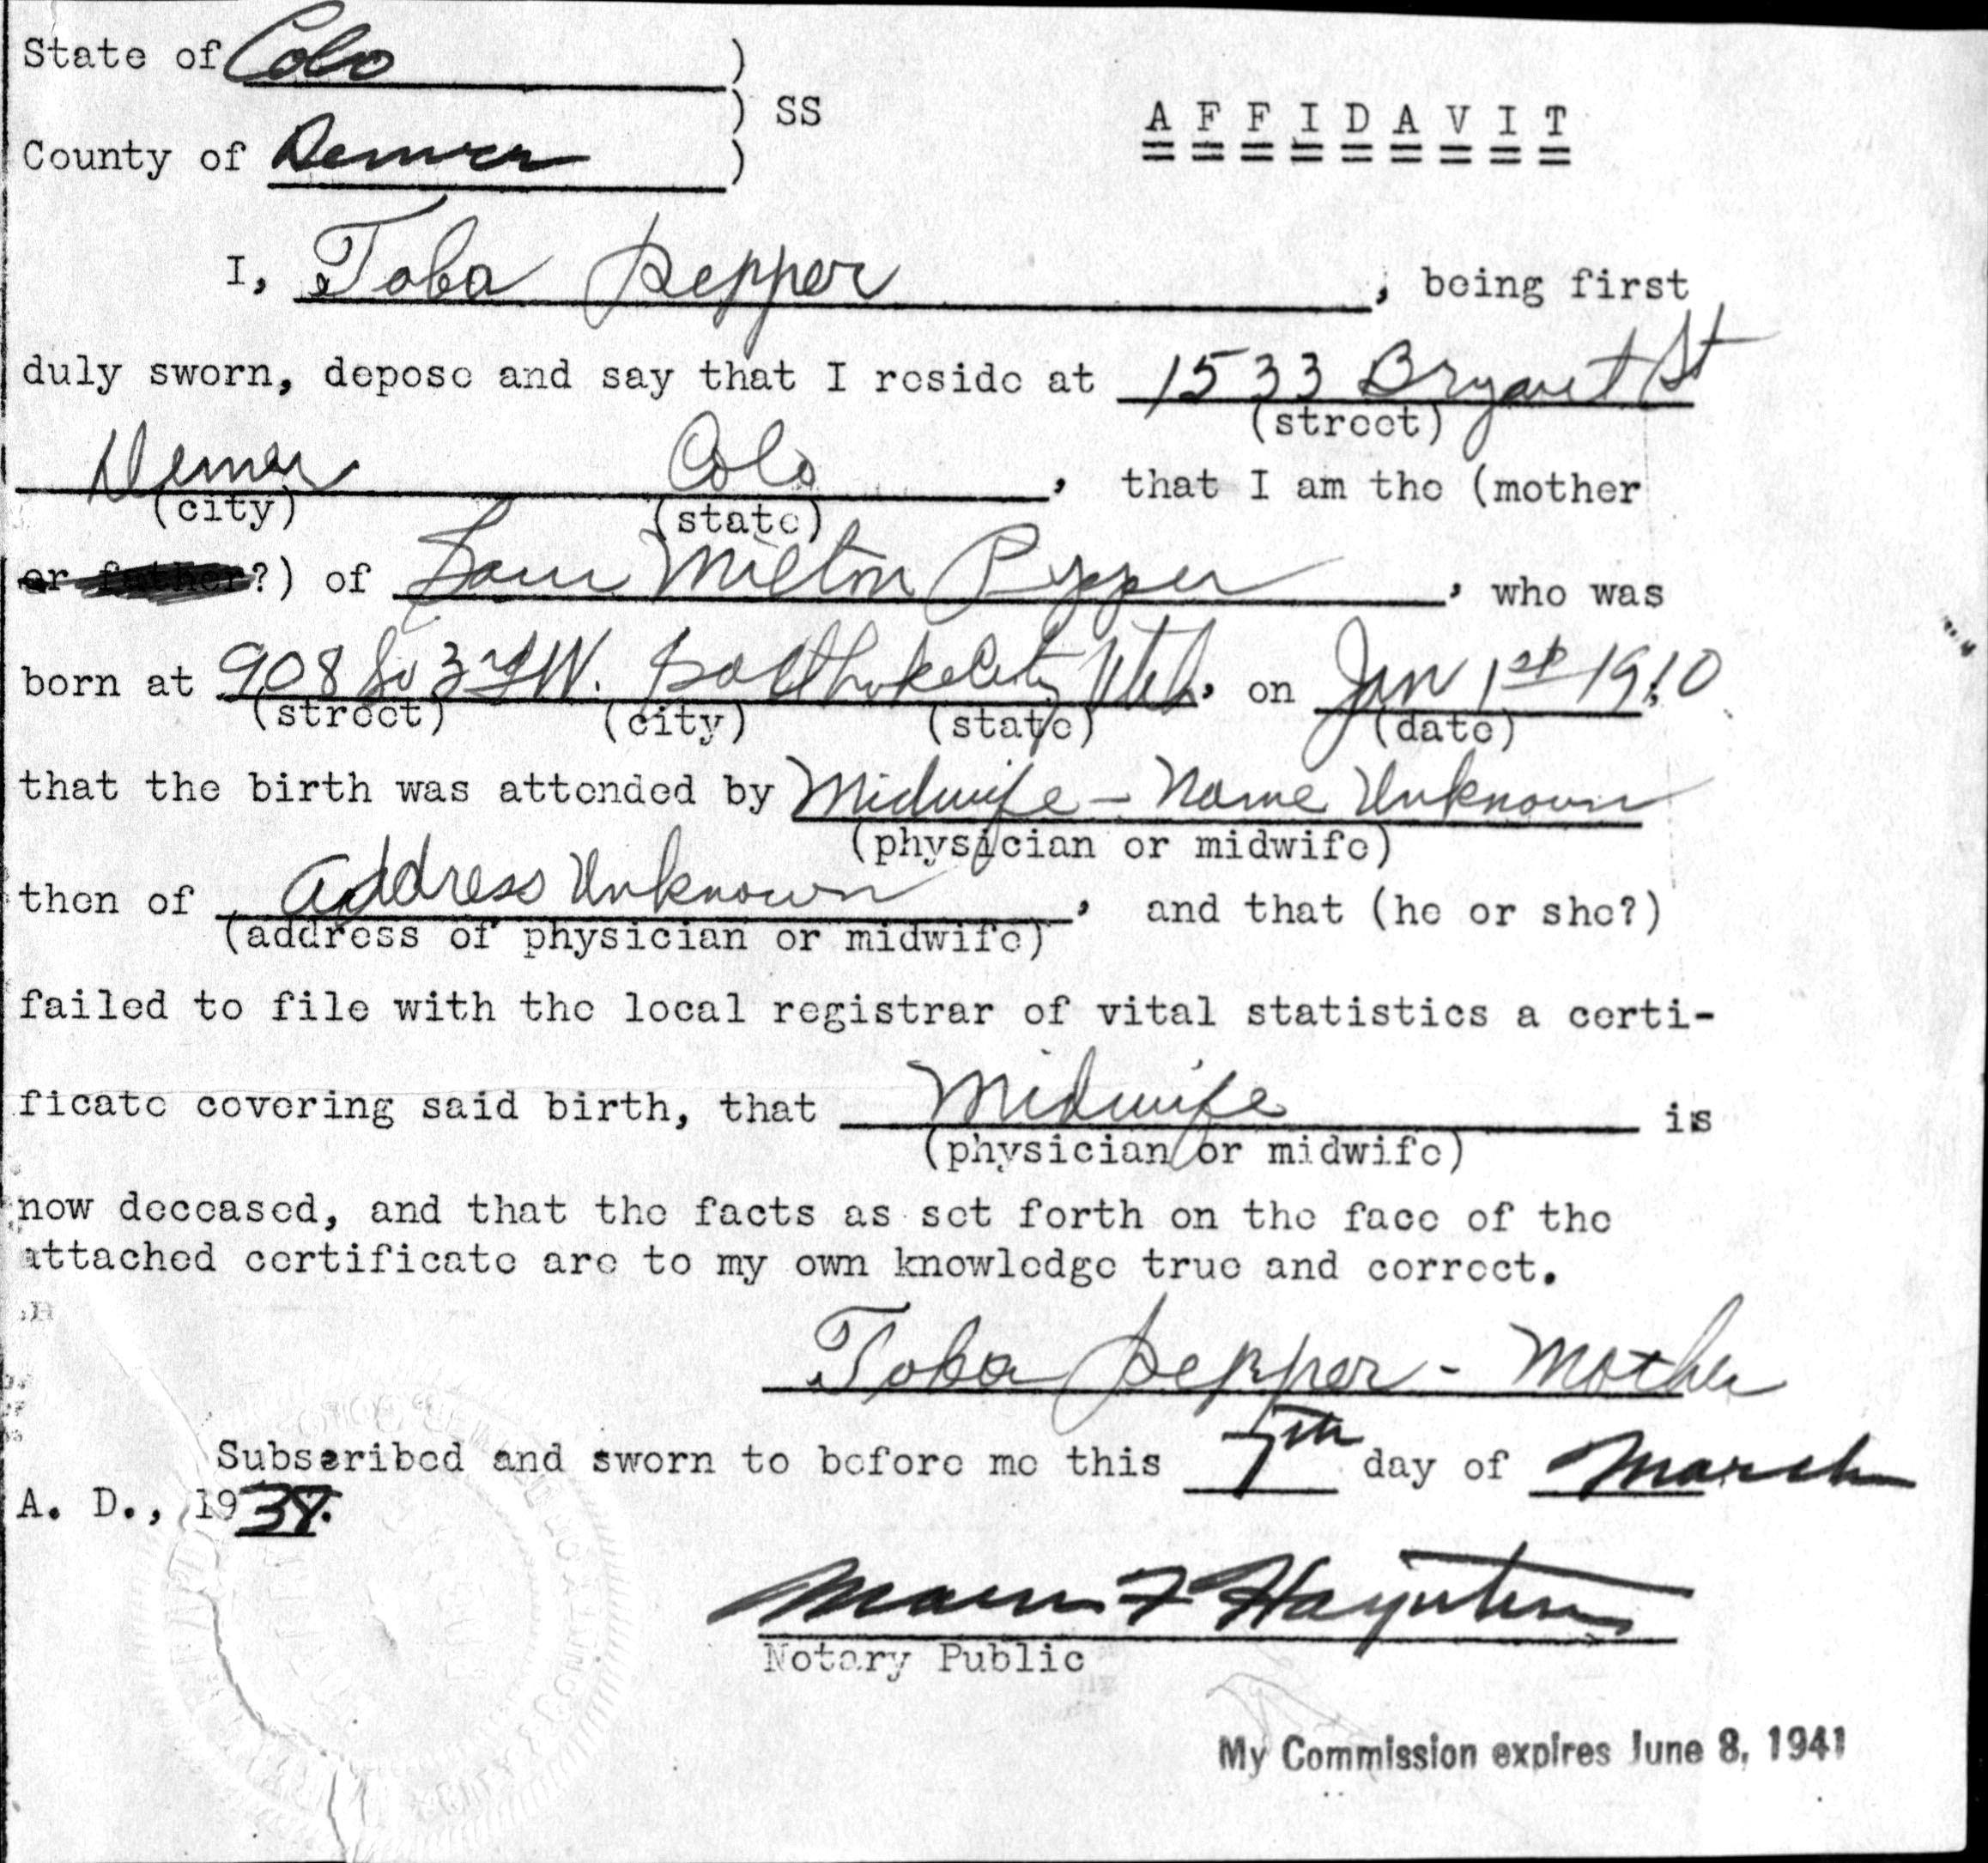 State of Colo )
) SS
A F F I D A V I T
County of Denver )
I, Toba Pepper, being first
duly sworn, depose and say that I reside at 1533 Bryant St
(street)
Denver Colo, that I am the (mother
(city) (state)
or father?) of Sam Milton Pepper, who was
born at 908 So 3rd W. Salt Lake City Utah, on Jan 1st 1910
(street) (city) (state) (date)
that the birth was attended by Midwife - Name Unknown
(physician or midwife)
then of Address Unknown, and that (he or she?)
(address of physician or midwife)
failed to file with the local registrar of vital statistics a certi-
ficate covering said birth, that Midwife is
(physician or midwife)
now deceased, and that the facts as set forth on the face of the
attached certificate are to my own knowledge true and correct.
Toba Pepper - Mother
Subscribed and sworn to before me this 7th day of March
A. D., 1938.
Notary Public
My Commission expires June 8, 1941